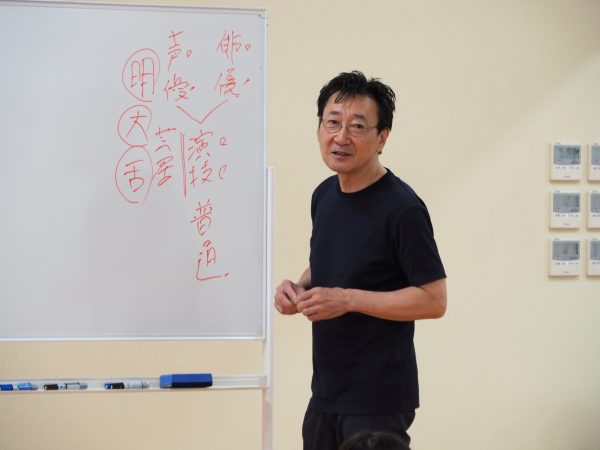 俳優
声優
演技
普通
芸名
明
大
舌